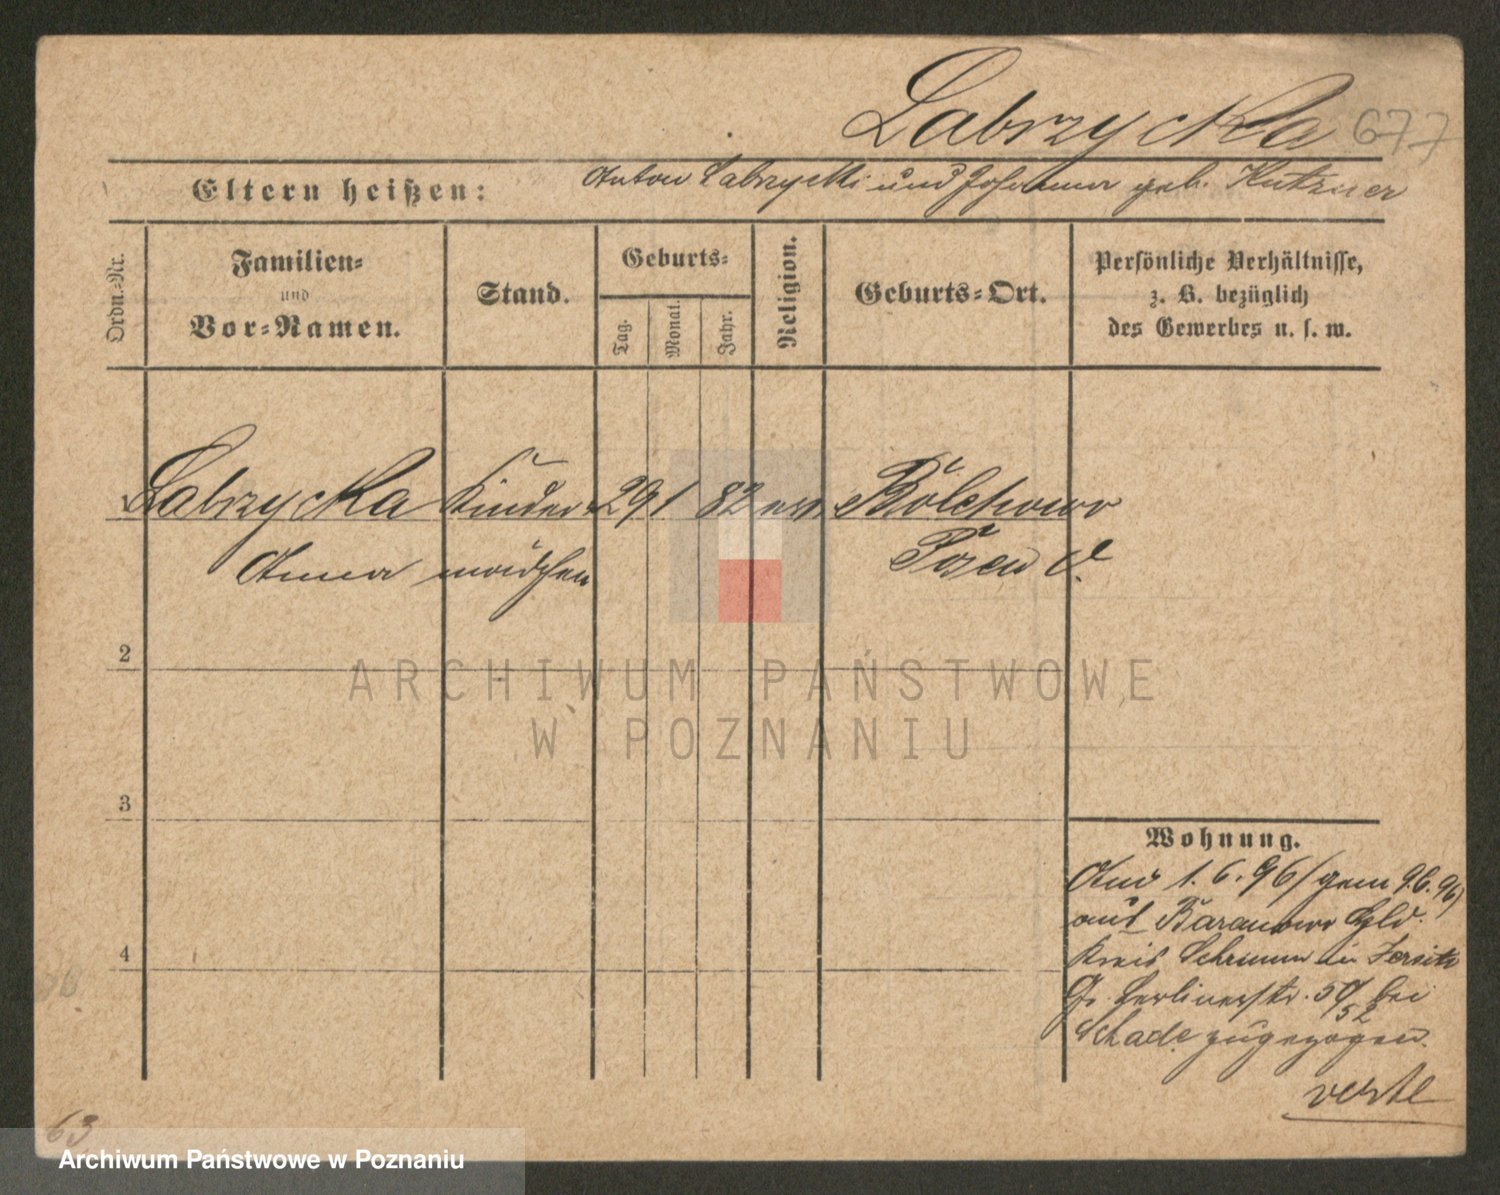 Labrzycka 677
Eltern heißen: Anton Labrzycki und Johanna geb. Kutzner
Ordn.-Nr.
Familien-
und
Vor-Namen.
Stand.
Geburts-
Tag.
Monat.
Jahr.
Religion.
Geburts-Ort.
Persönliche Verhältnisse,
z. B. bezüglich
des Gewerbes u. s. w.
Labrzycka Kinder- 29 1 82 ev. Bolechowo
Anna mädchen Posen O.
2
3
4
Wohnung.
1.6.96 / gem 9.6.96)
aus Baranowo
Kreis Schrimm in Jersitz
Gr. Berlinerstr. 50/52 bei
Schade zugezogen.
verte
63
ARCHIWUM PAŃSTWOWE
W POZNANIU
Archiwum Państwowe w Poznaniu